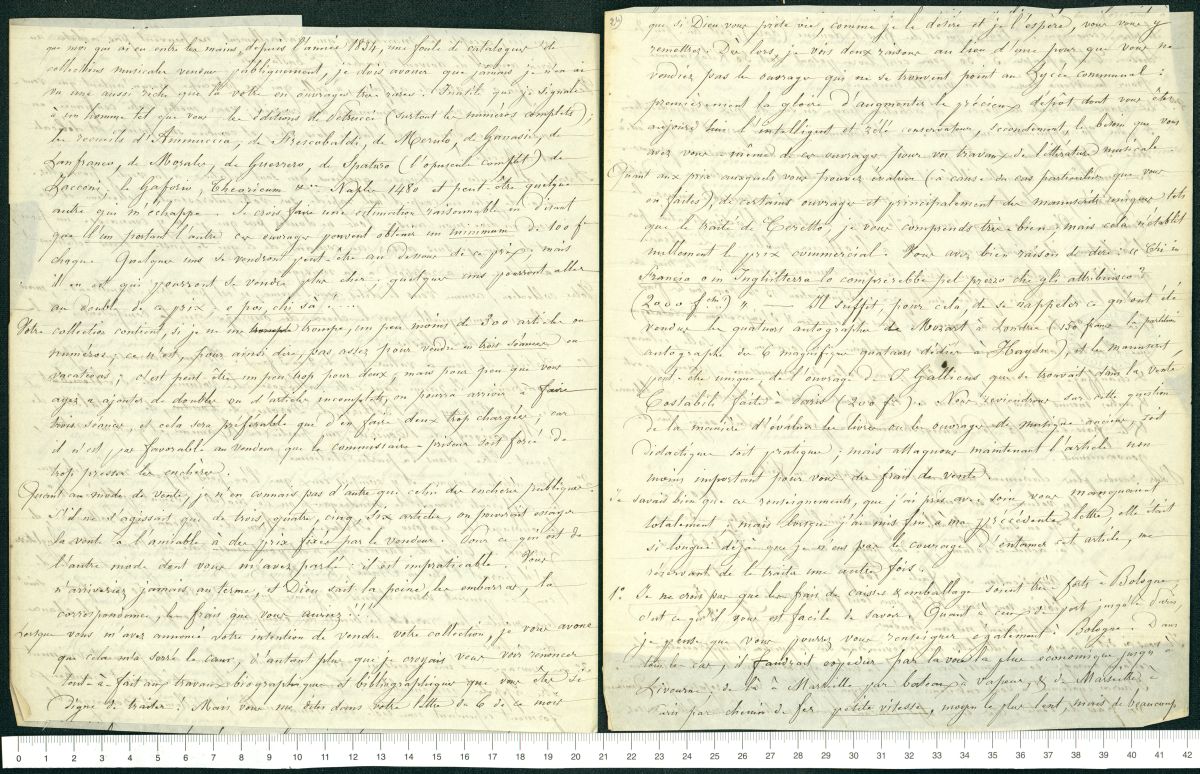 que moi qui ai eu entre les mains, depuis l'année 1834, une foule de catalogues de
collections musicales vendues publiquement, je dois avouer que jamais je n'en ai
vu une aussi riche que la vôtre en ouvrages très rares. Inutile que je signale
à un homme tel que vous les éditions de Petrucci (surtout les numéros complets);
les recueils d'Animuccia, de Frescobaldi, de Merulo, de Ganassi, de
Lanfranco, de Morales, de Guerrero, de Spataro (l'opuscule complet) de
Zacconi; le Gaforio Theoricum Naples 1480 et peut-être quelque
autre qui m'échappe. Je crois faire une estimation raisonnable en disant
que l'un portant l'autre ces ouvrages peuvent obtenir un minimum de 100 f
chaque. Quelques uns se vendront peut-être au dessous de ce prix, mais
il en est qui pourront se vendre plus cher; quelques uns pourront aller
au double de ce prix e poi, chi sà.
Votre collection contient, si je ne me trompe, un peu moins de 300 articles ou
numéros; ce n'est, pour ainsi dire, pas assez pour vendre en trois séances ou
vacations; c'est peut-être un peu trop pour deux, mais pour peu que vous
ayez à ajouter de doubles ou d'articles incomplets, on pourra arriver à faire
trois séances, et cela sera préférable que d'en faire deux trop chargées; car
il n'est pas favorable au vendeur que le commissaire priseur soit forcé de
trop presser les enchères.
Quant au mode de vente, je n'en connais pas d'autre que celui des enchères publiques.
S'il ne s'agissait que de trois, quatre, cinq, six articles, on pourrait essayer
la vente à l'amiable à des prix fixés par le vendeur. Pour ce qui est de
l'autre mode dont vous m'avez parlé: il est impraticable. Vous
n'arriveriez jamais au terme, et Dieu sait la peine, les embarras, la
correspondance, les frais que vous auriez!!!
Lorsque vous m'avez annoncé votre intention de vendre votre collection, je vous avoue
que cela m'a serré le cœur, d'autant plus que je croyais vous voir renoncer
tout-à-fait aux travaux biographiques et bibliographiques que vous êtes si
digne de traiter. Mais vous me dites dans votre lettre du 6 de ce mois
que si Dieu vous prête vie, comme je le désire et je l'espère, vous vous y
remettrez. Dès lors, je vois deux raisons au lieu d'une pour que vous ne
vendiez pas les ouvrages qui ne se trouvent point au Lycée communal:
premièrement la gloire d'augmenter le précieux dépôt dont vous êtes
aujourd'hui l'intelligent et zélé conservateur, secondement, le besoin que vous
avez vous-même de ces ouvrages pour vos travaux de littérature musicale.
Quant aux prix auxquels vous pouvez évaluer (à cause du cas particulier que vous
en faites), de certains ouvrages et principalement des manuscrits uniques, tels
que le traité de Ceretto, je vous comprends très bien; mais cela n'établit
nullement le prix commercial. Vous avez bien raison de dire: « Chi in
Francia o in Inghilterra lo comprerebbe pel prezzo che gli attribuisco?
(2000 fchi) ». — Il suffit, pour cela, de se rappeler ce qu'ont été
vendus les quatuors autographes de Mozart à Londres (150 francs la partition
autographe des 6 magnifiques quatuors dédiés à Haydn), et le manuscrit
peut-être unique, de l'ouvrage de J. Gallicus qui se trouvait dans la vente
Costabili faite à Paris (200 f). Nous reviendrons sur cette question
de la manière d'évaluer les livres ou les ouvrages de musique ancienne soit
didactique soit pratique; mais attaquons maintenant l'article non
moins important pour vous des frais de vente.
Je savais bien que ces renseignements, que j'ai pris avec soin, vous manquaient
totalement; mais lorsque j'ai mis fin à ma précédente lettre, elle était
si longue déjà que je n'eus pas le courage d'entamer cet article, me
réservant de le traiter une autre fois.
1° Je ne crois pas que les frais de caisse & emballage soient très forts à Bologne,
c'est ce qu'il vous est facile de savoir. Quant à ceux de port jusqu'à Paris,
je pense que vous pourrez vous renseigner également à Bologne. Dans
tous les cas, il faudrait expédier par la voie la plus économique jusqu'à
Livourne, de là à Marseille par bateau à vapeur, & de Marseille à
Paris par chemin de fer petite vitesse, moyen le plus lent, mais de beaucoup